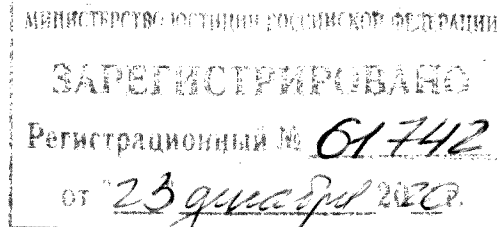 МИНИСТЕРСТВО ЮСТИЦИИ РОССИЙСКОЙ ФЕДЕРАЦИИ
ЗАРЕГИСТРИРОВАНО
Регистрационный № 61742
от "23" декабря 2020.